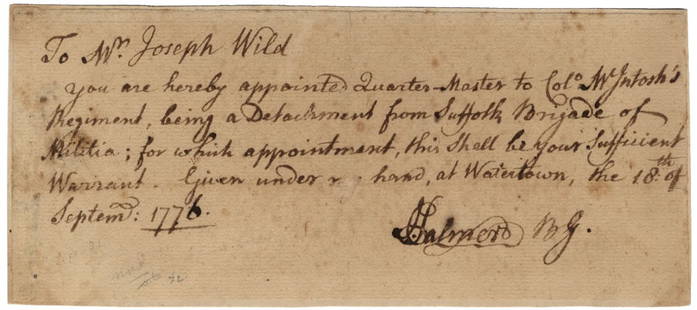 To Mr. Joseph Wild
You are hereby appointed Quarter-Master to Colo. McIntosh's
Regiment, being a Detachment from Suffolk Brigade of
Militia; for which appointment, this Shall be your Sufficient
Warrant. Given under hand, at Watertown, the 18.th of
Septemr: 1776.
JPalmer BG.